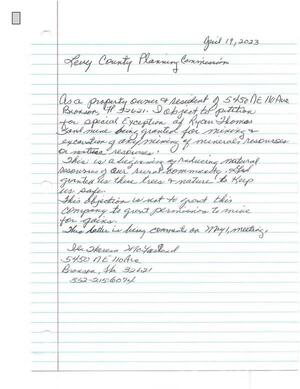 April 19, 2023
Levy County Planning Commission
As a property owner & resident of 5450 NE 110 Ave
Bronson, Fl 32621. I object to petition
for special Exception of Ryan Thomas
Sand mine being granted for mining &
excavation of any mining of mineral resources
or natural resources.
This is a beginning of reducing natural
resources of our rural community. God
granted us these trees & nature to keep
us safe.
This objection is not to grant this
company to great permission to mine
for gains.
This letter is being comments on May 1, meeting.
Theresa
5450 NE 110 Ave
Bronson, Fla 32621
352-215-6074